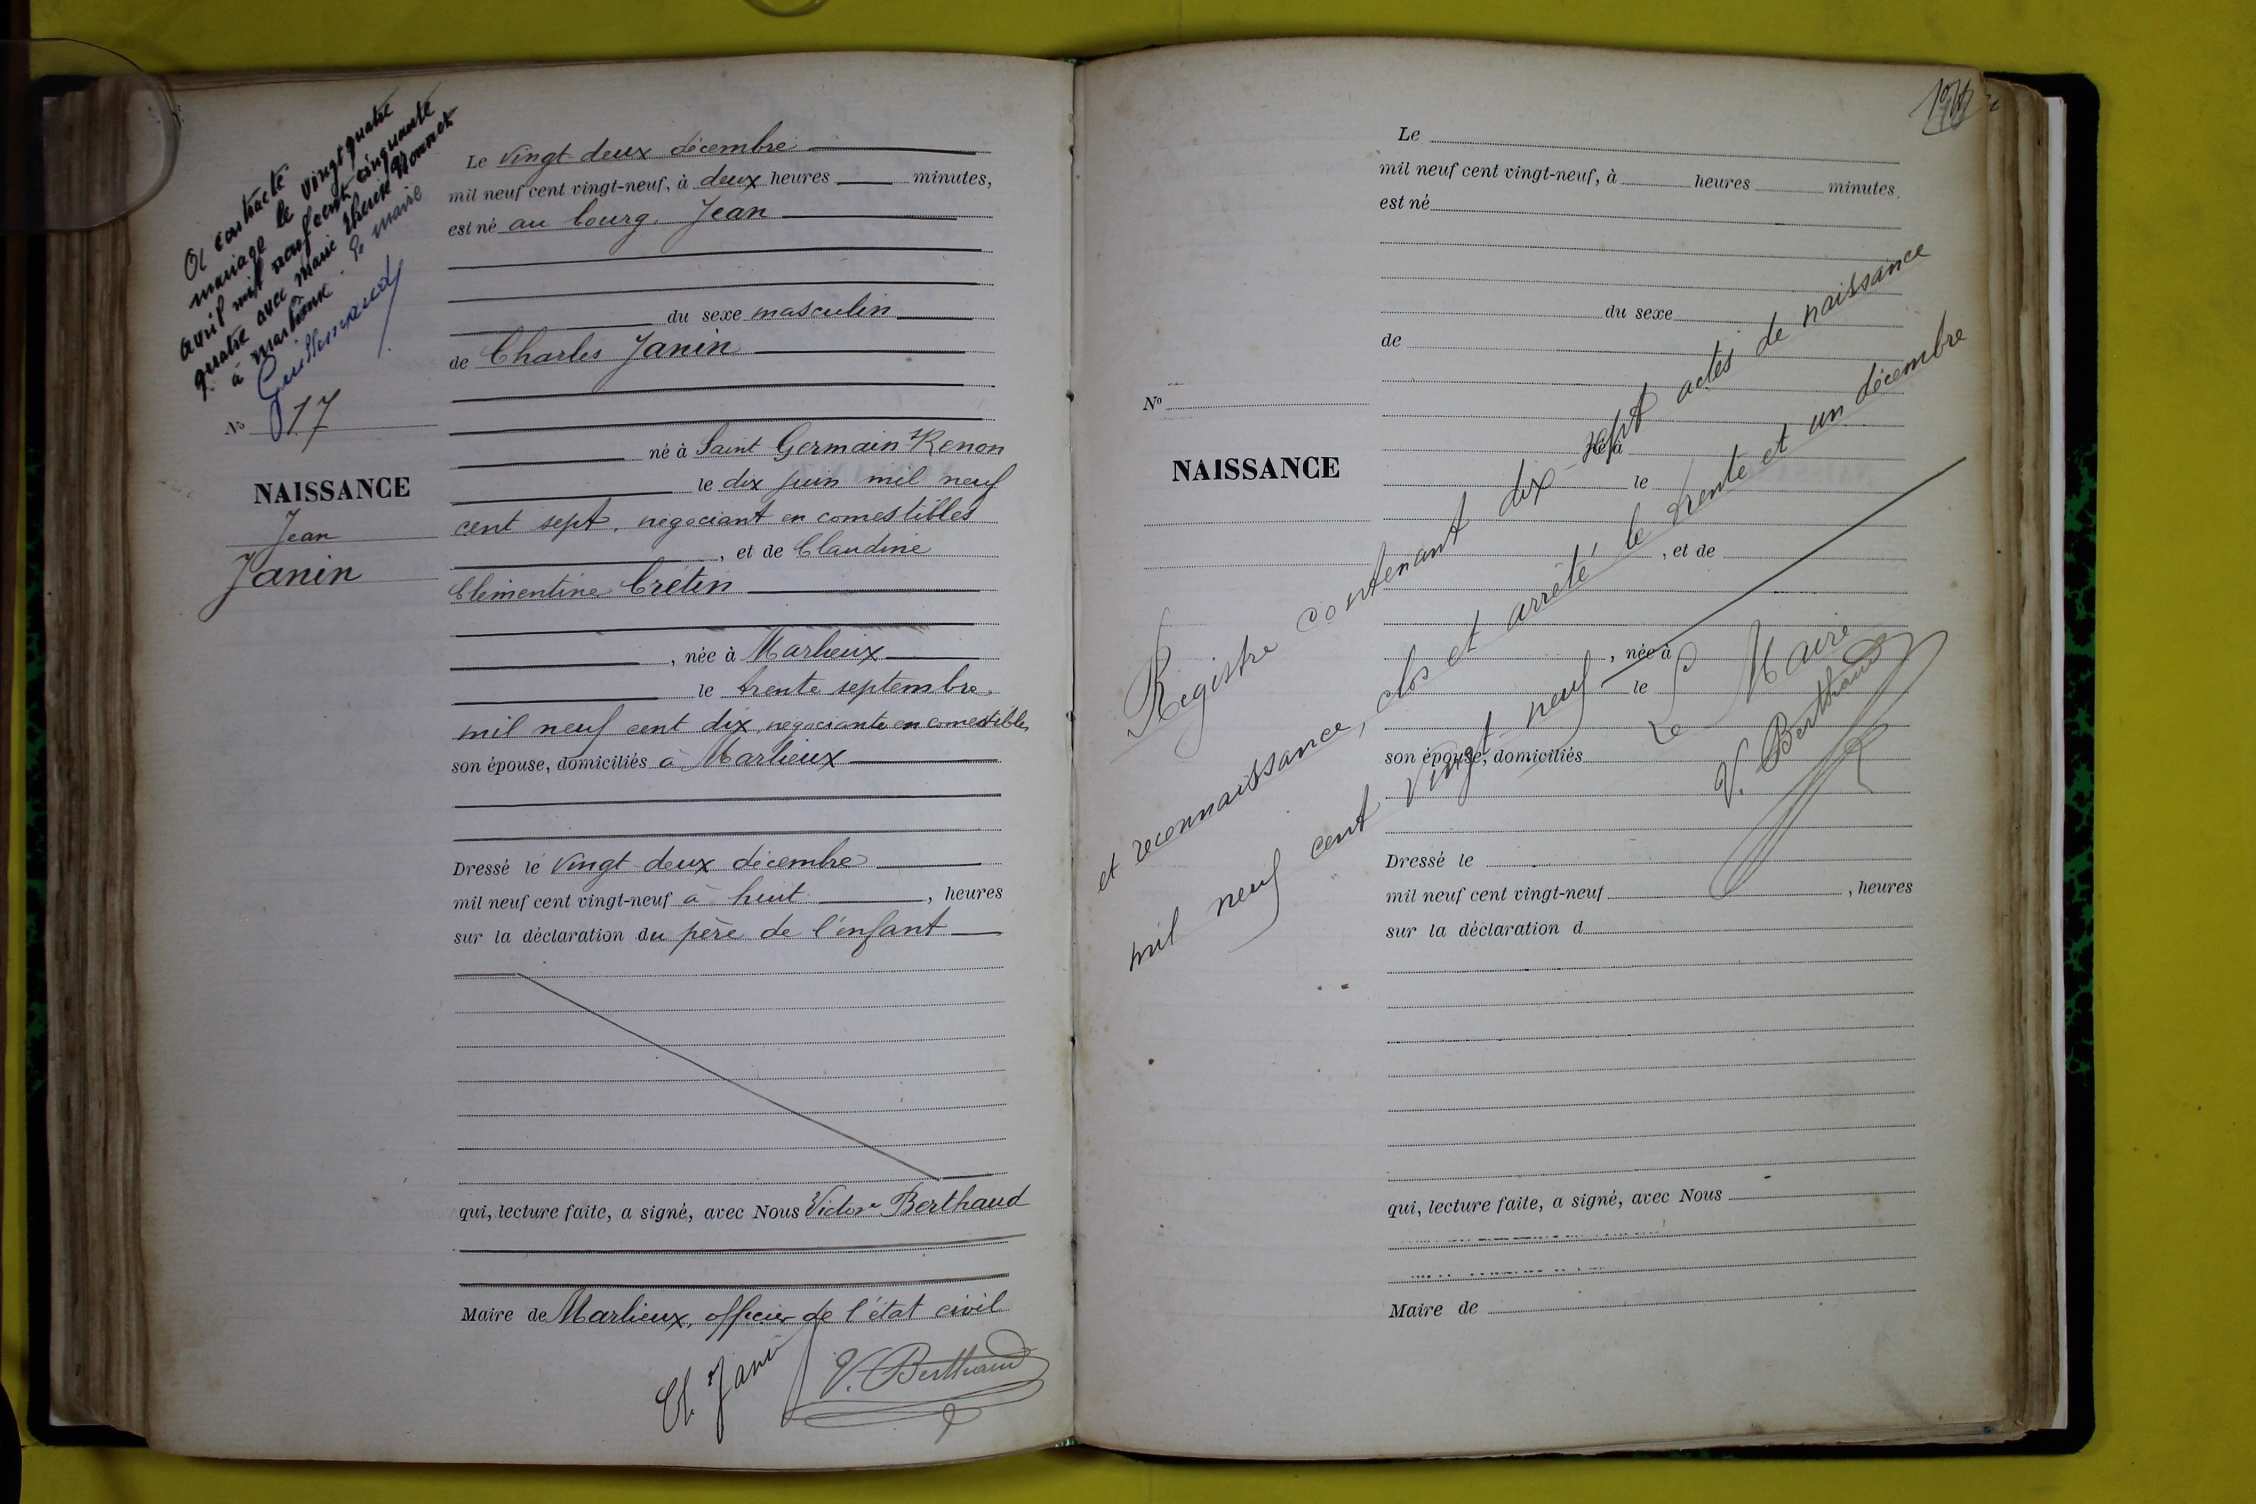 A contracté
mariage le vingt quatre
avril mil neuf cent cinquante
quatre avec Marie Thérèse
à Marlieux. Le Maire
Nº 17
NAISSANCE
Jean
Janin
Le vingt-deux décembre
mil neuf cent vingt-neuf, à deux heures minutes,
est né au bourg. Jean
du sexe masculin
de Charles Janin
né à Saint Germain s/Renon
le dix juin mil neuf
cent sept, négociant en comestibles
, et de Claudine
Clémentine Crétin
, née à Marlieux
le trente septembre
mil neuf cent dix, négociante en comestibles
son épouse, domiciliés à Marlieux
Dressé le vingt deux décembre
mil neuf cent vingt-neuf à huit , heures
sur la déclaration du père de l'enfant
qui, lecture faite, a signé, avec Nous Victor Berthaud
Maire de Marlieux, officier de l'état civil
Ch. Janin
V. Berthaud
Le
mil neuf cent vingt-neuf, à heures minutes.
est né
du sexe
de
Nº
NAISSANCE
né à
le
, et de
, née à
le
son épouse, domiciliés
Dressé le
mil neuf cent vingt-neuf , heures
sur la déclaration d
qui, lecture faite, a signé, avec Nous
Maire de
Registre contenant dix-sept actes de naissance
et reconnaissance, clos et arrêté, le trente et un décembre
mil neuf cent vingt neuf
Le Maire
V. Berthaud